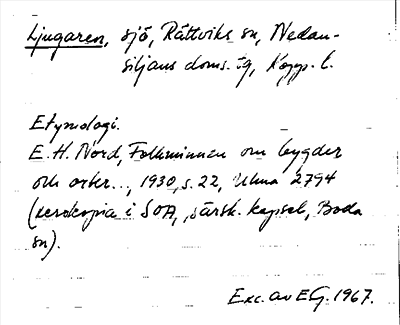 Ljugaren, sjö, Rättviks sn, Nedan-
siljans doms. tg, Kopp. l.
Etymologi.
E. H. Nord, Folkminnen om bygder
och orter..., 1930, s. 22, Ulma 2794
(xerokopia i SOA, särsk. kapsel, Boda
sn).
Exc. av EG. 1967.